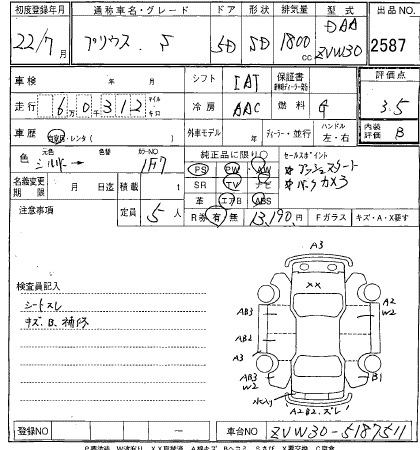 初度登録年月 通称車名・グレード ドア 形状 排気量 型式 出品NO.
22/7月 プリウス . S 5D 5D 1800cc DAA ZVW30 2587
車検 年 月 シフト IAT 保証書 評価点
走行 6万0千312 マイル キロ 冷房 AAC 燃料 3.5
車歴 自家用・レンタ( ) 外車モデル 年 ディーラー・並行 ハンドル 左・右 内装評価 B
色 元色 シルバー → 色替 カラーNO 1F7 純正品に限り○ セールスポイント
PS PW AW プッシュスタート
名義変更期限 月 日迄 積載 t SR TV ナビ バックカメラ
注意事項 定員 5人 革 エアB ABS
R券 有 無 13,190円 Fガラス キズ・A・X要す
検査員記入
シートスレ
キズ、B、補修
A3
XX
AB3
AB2
A3
AB3 W2
A2 W2
B1
A2B2、ズレ
登録NO - 車台NO ZVW30-5187511